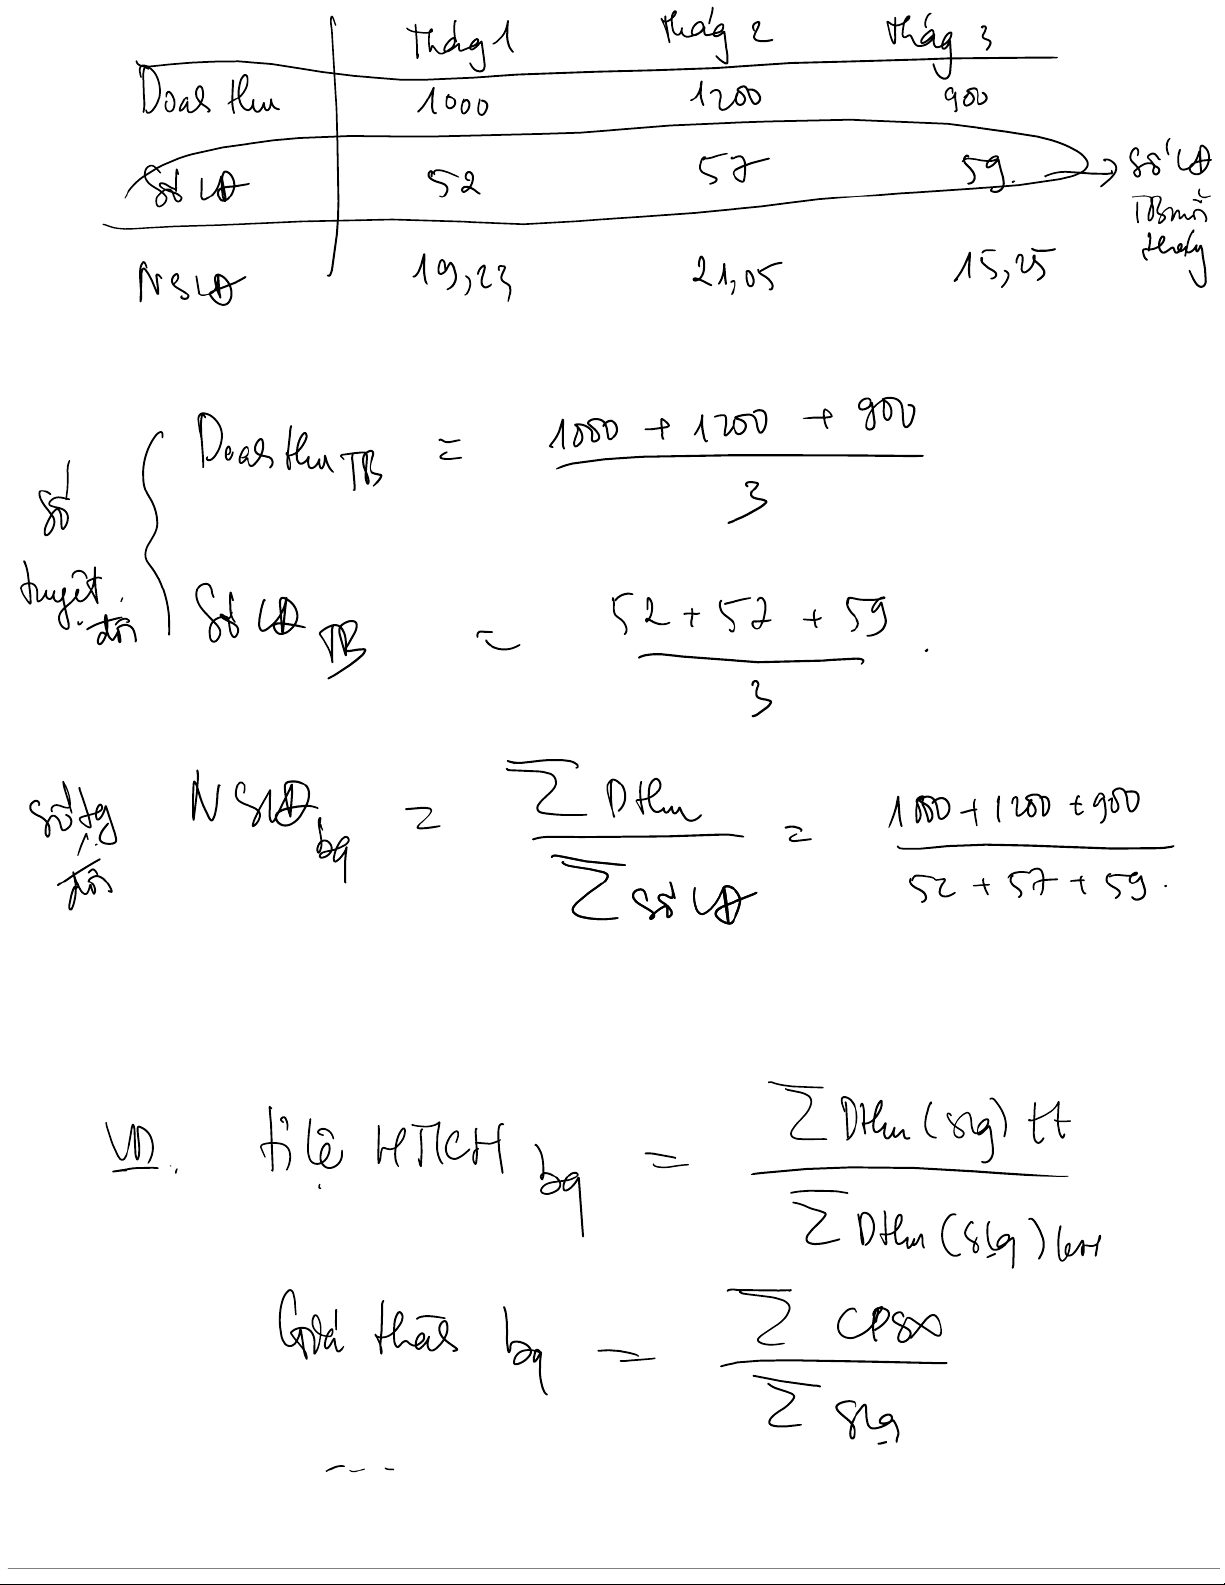 Tháng 1 tháng 2 tháng 3
Doanh thu 1000 1200 900
Số LĐ 52 57 59 → Số LĐ
TB mỗi
tháng
NSLĐ 19,23 21,05 15,25
Số tuyệt đối { Doanh thu TB = (1000 + 1200 + 900) / 3
Số LĐ TB = (52 + 57 + 59) / 3
số tg đối NSLĐ bq = Σ Dthu / Σ số LĐ = (1000 + 1200 + 900) / (52 + 57 + 59)
VD. tỉ lệ HTKH bq = Σ Dthu (slg) tt / Σ Dthu (slg) KH
Giá thành bq = Σ CPSX / Σ slg
---